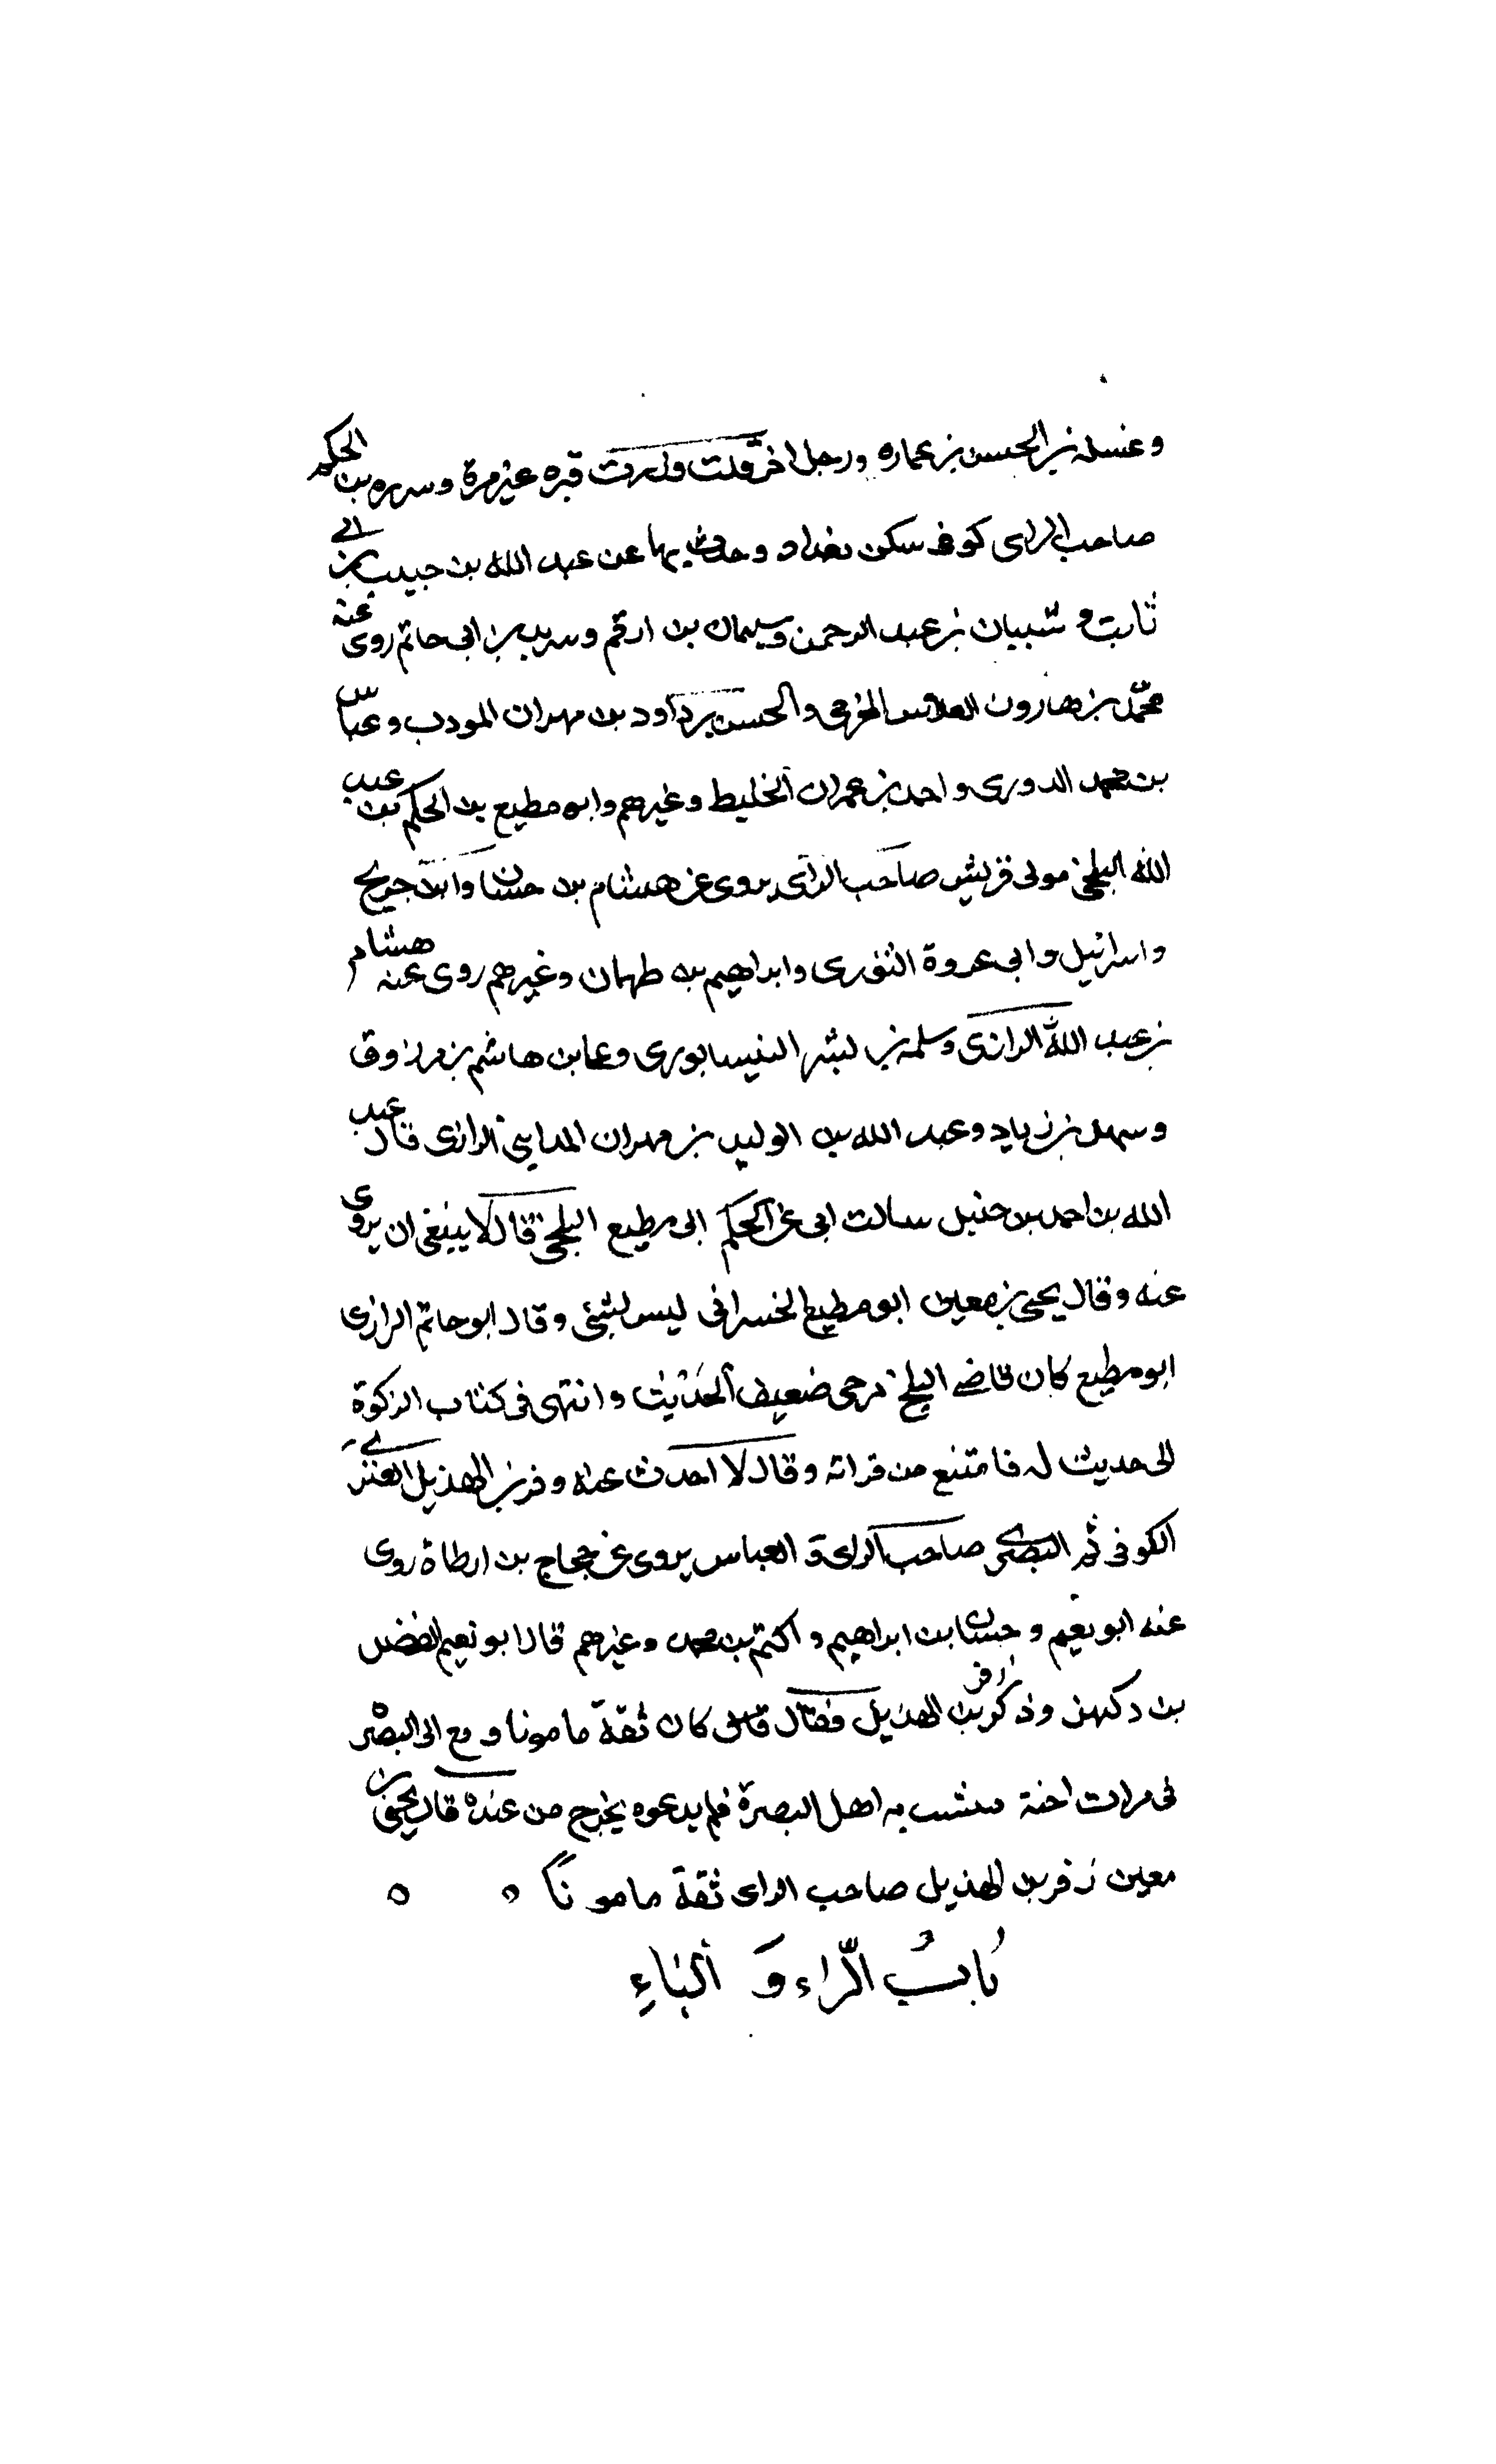 وغسله بن الحسن بن عماره ورجل اخر قلت وزرت قبره غير مرة و بن الحكم
صاحب الراى كوفى سكن بغداد وحدث بها عن عبد الله بن حبيب بن ابى
ثابت و شيبان بن عبد الرحمن وسليمان بن ارقم و بن ابى حاتم روى عنه
محمد بن هارون الفلاس المخرمى والحسن بن داود بن مهران المودب وعباس
بن محمد الدورى واحمد بن عمران الخليط وغيرهم وابو مطيع بن الحكم بن عبد
الله البلخى مولى قريش صاحب الراى يروى عن هشام بن حسان وابن جريج
واسرائيل وابى عروة الثورى وابراهيم بن طهمان وغيرهم روى عنه هشام
بن عبيد الله الرازى وسلمه بن بشر النيسابورى وعابن هاشم بن مرزوق
وسهل بن زياد وعبد الله بن الوليد بن مهران المداينى الرازى قال عبد
الله بن احمد بن حنبل سالت ابى عن الحكم ابى مطيع البلخى قال لا ينبغى ان يروى
عنه وقال يحيى بن معين ابو مطيع الخسرانى ليس بشئ وقال ابو حاتم الرازى
ابو مطيع كان قاضى البلخ مرجى ضعيف الحديث وانتهى فى كتاب الزكوة
الى حديث له فامتنع من قراته وقال لا احدث عنه وفر بن الهذيل العنبرى
الكوفى ثم البصرى صاحب الراى و العباس يروى عن حجاج بن ارطاة روى
عنه ابو نعيم وحسان بن ابراهيم واكثم بن محمد وغيرهم قال ابو نعيم الفضل
بن دكين وذكر زفر بن الهذيل فقال كان ثقة مامونا وقع الى البصره
فى ميراث اخته فتشبث به اهل البصرة فلم يدعوه يخرج من عنده قال يحيى بن
معين زفر بن الهذيل صاحب الراى ثقة مامونًا
بَابُ الرَّاء وَ البَاءِ